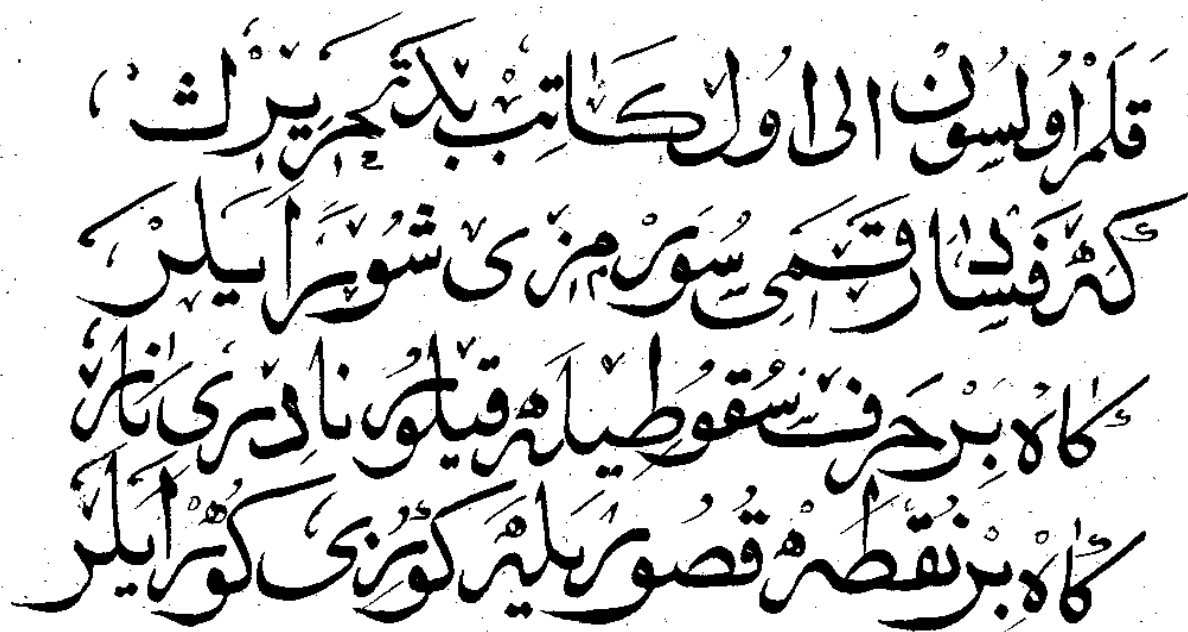 قلم اولسون الى اول كاتب بدتحريرڭ
كه فساد رقمى سورمزى شور ايلر
كاه بر حرف سقوطيله قيلور نادرى نار
كاه بر نقطه قصوريله كوزى كور ايلر